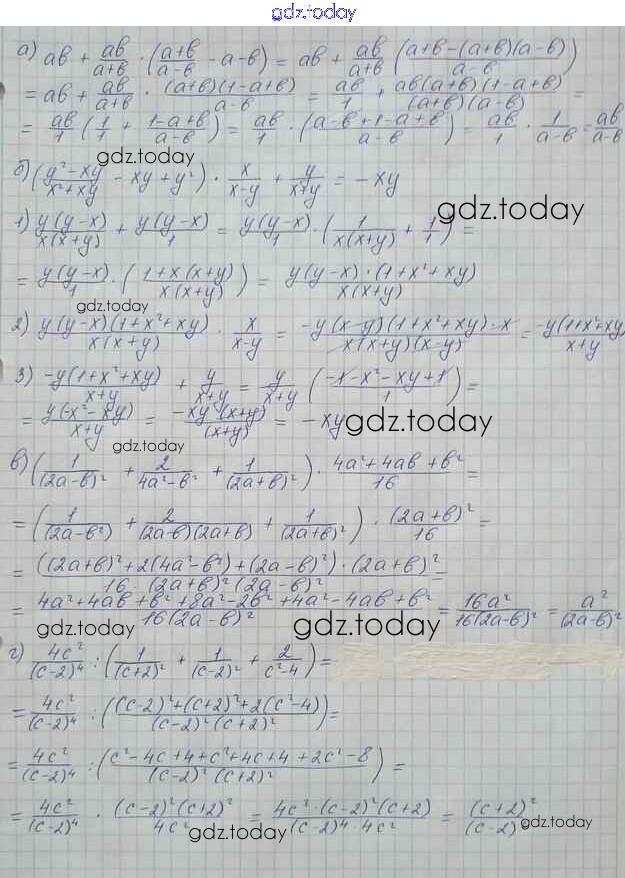 gdz.today
а) ab + ab/(a+b) · ((a+b)/(a-b) - a - b) = ab + ab/(a+b) ((a+b-(a+b)(a-b))/(a-b)) =
= ab + ab/(a+b) · (a+b)(1-a+b)/(a-b) = ab/1 + ab(a+b)(1-a+b)/((a+b)(a-b)) =
= ab/1 (1/1 + (1-a+b)/(a-b)) = ab/1 · ((a-b+1-a+b)/(a-b)) = ab/1 · 1/(a-b) = ab/(a-b)
gdz.today
б) ((y²-xy)/(x²+xy) - xy + y²) · x/(x-y) + y/(x+y) = -xy
gdz.today
1) y(y-x)/(x(x+y)) + y(y-x)/1 = y(y-x)/1 · (1/(x(x+y)) + 1/1) =
= y(y-x)/1 · ((1+x(x+y))/(x(x+y))) = y(y-x)·(1+x²+xy)/(x(x+y))
gdz.today
2) y(y-x)(1+x²+xy)/(x(x+y)) · x/(x-y) = -y(x-y)(1+x²+xy)·x/(x(x+y)(x-y)) = -y(1+x²+xy)/(x+y)
3) -y(1+x²+xy)/(x+y) + y/(x+y) = y/(x+y) ((-1-x²-xy+1)/1) =
= y(-x²-xy)/(x+y) = -xy(x+y)/(x+y) = -xy
gdz.today
gdz.today
в) (1/(2a-b)² + 2/(4a²-b²) + 1/(2a+b)²) · (4a²+4ab+b²)/16 =
= (1/(2a-b²) + 2/((2a-b)(2a+b)) + 1/(2a+b²)) · (2a+b)²/16 =
= ((2a+b)²+2(4a²-b²)+(2a-b)²)·(2a+b)²/(16·(2a+b)²(2a-b)²) =
= (4a²+4ab+b²+8a²-2b²+4a²-4ab+b²)/(16(2a-b)²) = 16a²/(16(2a-b)²) = a²/(2a-b)²
gdz.today
gdz.today
г) 4c²/(c-2)⁴ : (1/(c+2)² + 1/(c-2)² + 2/(c²-4)) =
= 4c²/(c-2)⁴ : (((c-2)²+(c+2)²+2(c²-4))/((c-2)²(c+2)²)) =
= 4c²/(c-2)⁴ : ((c²-4c+4+c²+4c+4+2c²-8)/((c-2)²(c+2)²)) =
= 4c²/(c-2)⁴ · (c-2)²(c+2)²/4c² = 4c²·(c-2)²(c+2)/((c-2)⁴·4c²) = (c+2)²/(c-2)
gdz.today
gdz.today